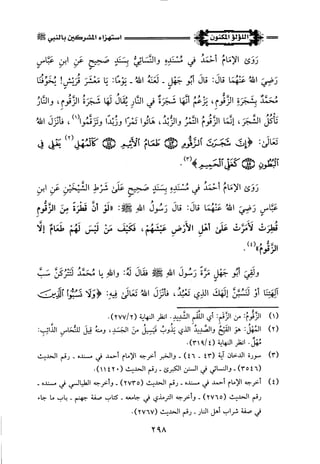 اللؤلؤ المكنون
استهزاء المشركين بالنبي ﷺ
رَوَى الإِمَامُ أَحْمَدُ فِي مُسْنَدِهِ والنَّسَائِيُّ بِسَنَدٍ صَحِيحٍ عَنِ ابنِ عَبَّاسٍ
رَضِيَ اللهُ عَنْهُمَا قَالَ: قَالَ أَبُو جَهْلٍ - لَعَنَهُ اللهُ - يَوْمًا: يَا مَعْشَرَ قُرَيْشٍ! يُخَوِّفُنَا
مُحَمَّدٌ بِشَجَرَةِ الزَّقُّومِ، يَزْعُمُ أَنَّهَا شَجَرَةٌ فِي النَّارِ يُقَالُ لَهَا شَجَرَةُ الزَّقُّومِ، والنَّارُ
تَأْكُلُ الشَّجَرَ، إِنَّمَا الزَّقُّومُ التَّمْرُ والزُّبْدُ، هَاتُوا تَمْرًا وزُبْدًا وتَزَقَّمُوا(١)، فَأَنْزَلَ اللهُ
تَعَالَى: ﴿إِنَّ شَجَرَتَ الزَّقُّومِ ۝ طَعَامُ الْأَثِيمِ ۝ كَالْمُهْلِ(٢) يَغْلِي فِي
الْبُطُونِ ۝ كَغَلْيِ الْحَمِيمِ﴾(٣).
رَوَى الإِمَامُ أَحْمَدُ فِي مُسْنَدِهِ بِسَنَدٍ صَحِيحٍ عَلَى شَرْطِ الشَّيْخَيْنِ عَنِ ابنِ
عَبَّاسٍ رَضِيَ اللهُ عَنْهُمَا قَالَ: قَالَ رَسُولُ اللهِ ﷺ: «لَوْ أَنَّ قَطْرَةً مِنَ الزَّقُّومِ
قُطِرَتْ لَأَمَرَّتْ عَلَى أَهْلِ الأَرْضِ عَيْشَهُمْ، فَكَيْفَ مَنْ لَيْسَ لَهُمْ طَعَامٌ إِلَّا
الزَّقُّومُ»(٤).
ولَقِيَ أَبُو جَهْلٍ مَرَّةً رَسُولَ اللهِ ﷺ فَقَالَ لَهُ: واللهِ يَا مُحَمَّدُ لَتَتْرُكَنَّ سَبَّ
آلِهَتِنَا أَوْ لَنَسُبَّنَّ إِلَهَكَ الذِي تَعْبُدُ، فَأَنْزَلَ اللهُ تَعَالَى فِيهِ: ﴿وَلَا تَسُبُّوا الَّذِينَ
(١) الزَّقُّومُ: مِنَ الزَّقْمِ: أي اللَّقْمِ الشَّدِيدِ. انظر النهاية (٢٧٧/٢).
(٢) المُهْلُ: هو القَيْحُ والصَّدِيدُ الذي يَذُوبُ فَيَسِيلُ مِنَ الجَسَدِ، ومنه قِيلَ للنُّحَاسِ الذَّائِبِ:
مُهْلٌ. انظر النهاية (٣١٩/٤).
(٣) سورة الدخان آية (٤٣ - ٤٦) - والخبر أخرجه الإمام أحمد في مسنده - رقم الحديث
(٣٥٤٦) - والنسائي في السنن الكبرى - رقم الحديث (١١٤٢٠).
(٤) أخرجه الإمام أحمد في مسنده - رقم الحديث (٢٧٣٥) - وأخرجه الطيالسي في مسنده -
رقم الحديث (٢٧٦٥) - وأخرجه الترمذي في جامعه - كتاب صفة جهنم - باب ما جاء
في صفة شراب أهل النار - رقم الحديث (٢٧٦٧).
٢٩٨